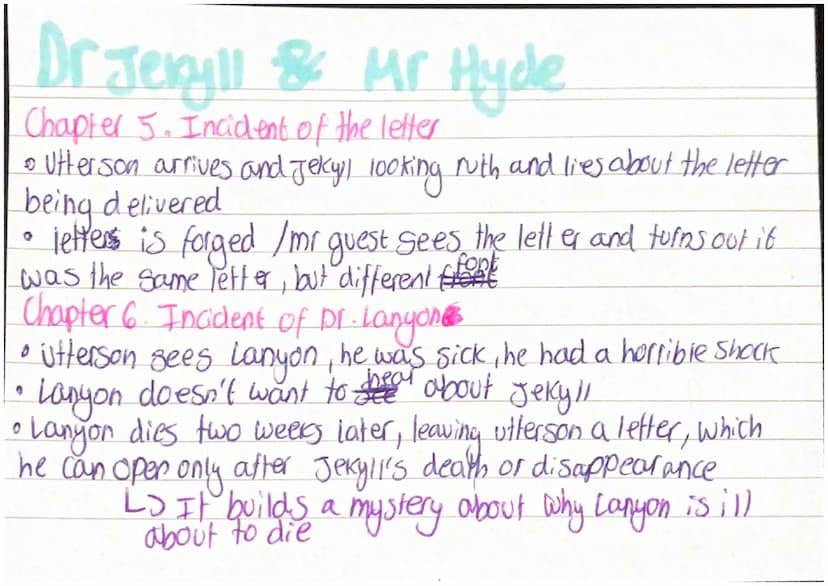 Dr Jekyll & Mr Hyde
Chapter 5. Incident of the letter
• Utterson arrives and Jekyll looking ruth and lies about the letter
being delivered
• letters is forged / mr guest sees the letter and turns out it
was the same letter, but different font
Chapter 6. Incident of Dr. Lanyon
• Utterson sees Lanyon, he was sick, he had a horrible shock
• Lanyon doesn't want to hear about Jekyll
• Lanyon dies two weeks later, leaving utterson a letter, which
he can open only after Jekyll's death or disappearance
↳ It builds a mystery about why Lanyon is ill
about to die